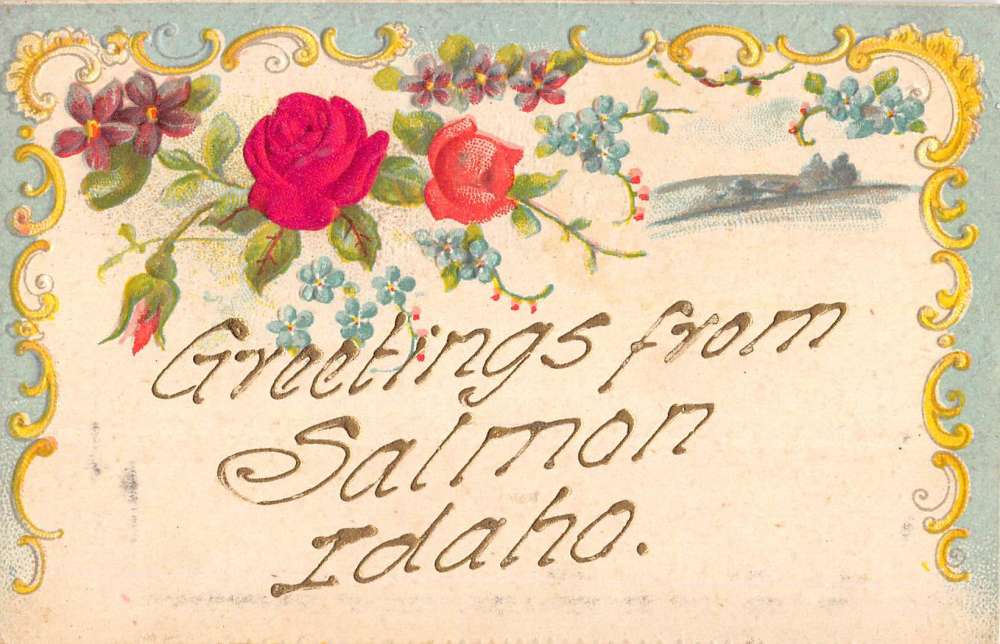 Greetings from
Salmon
Idaho.